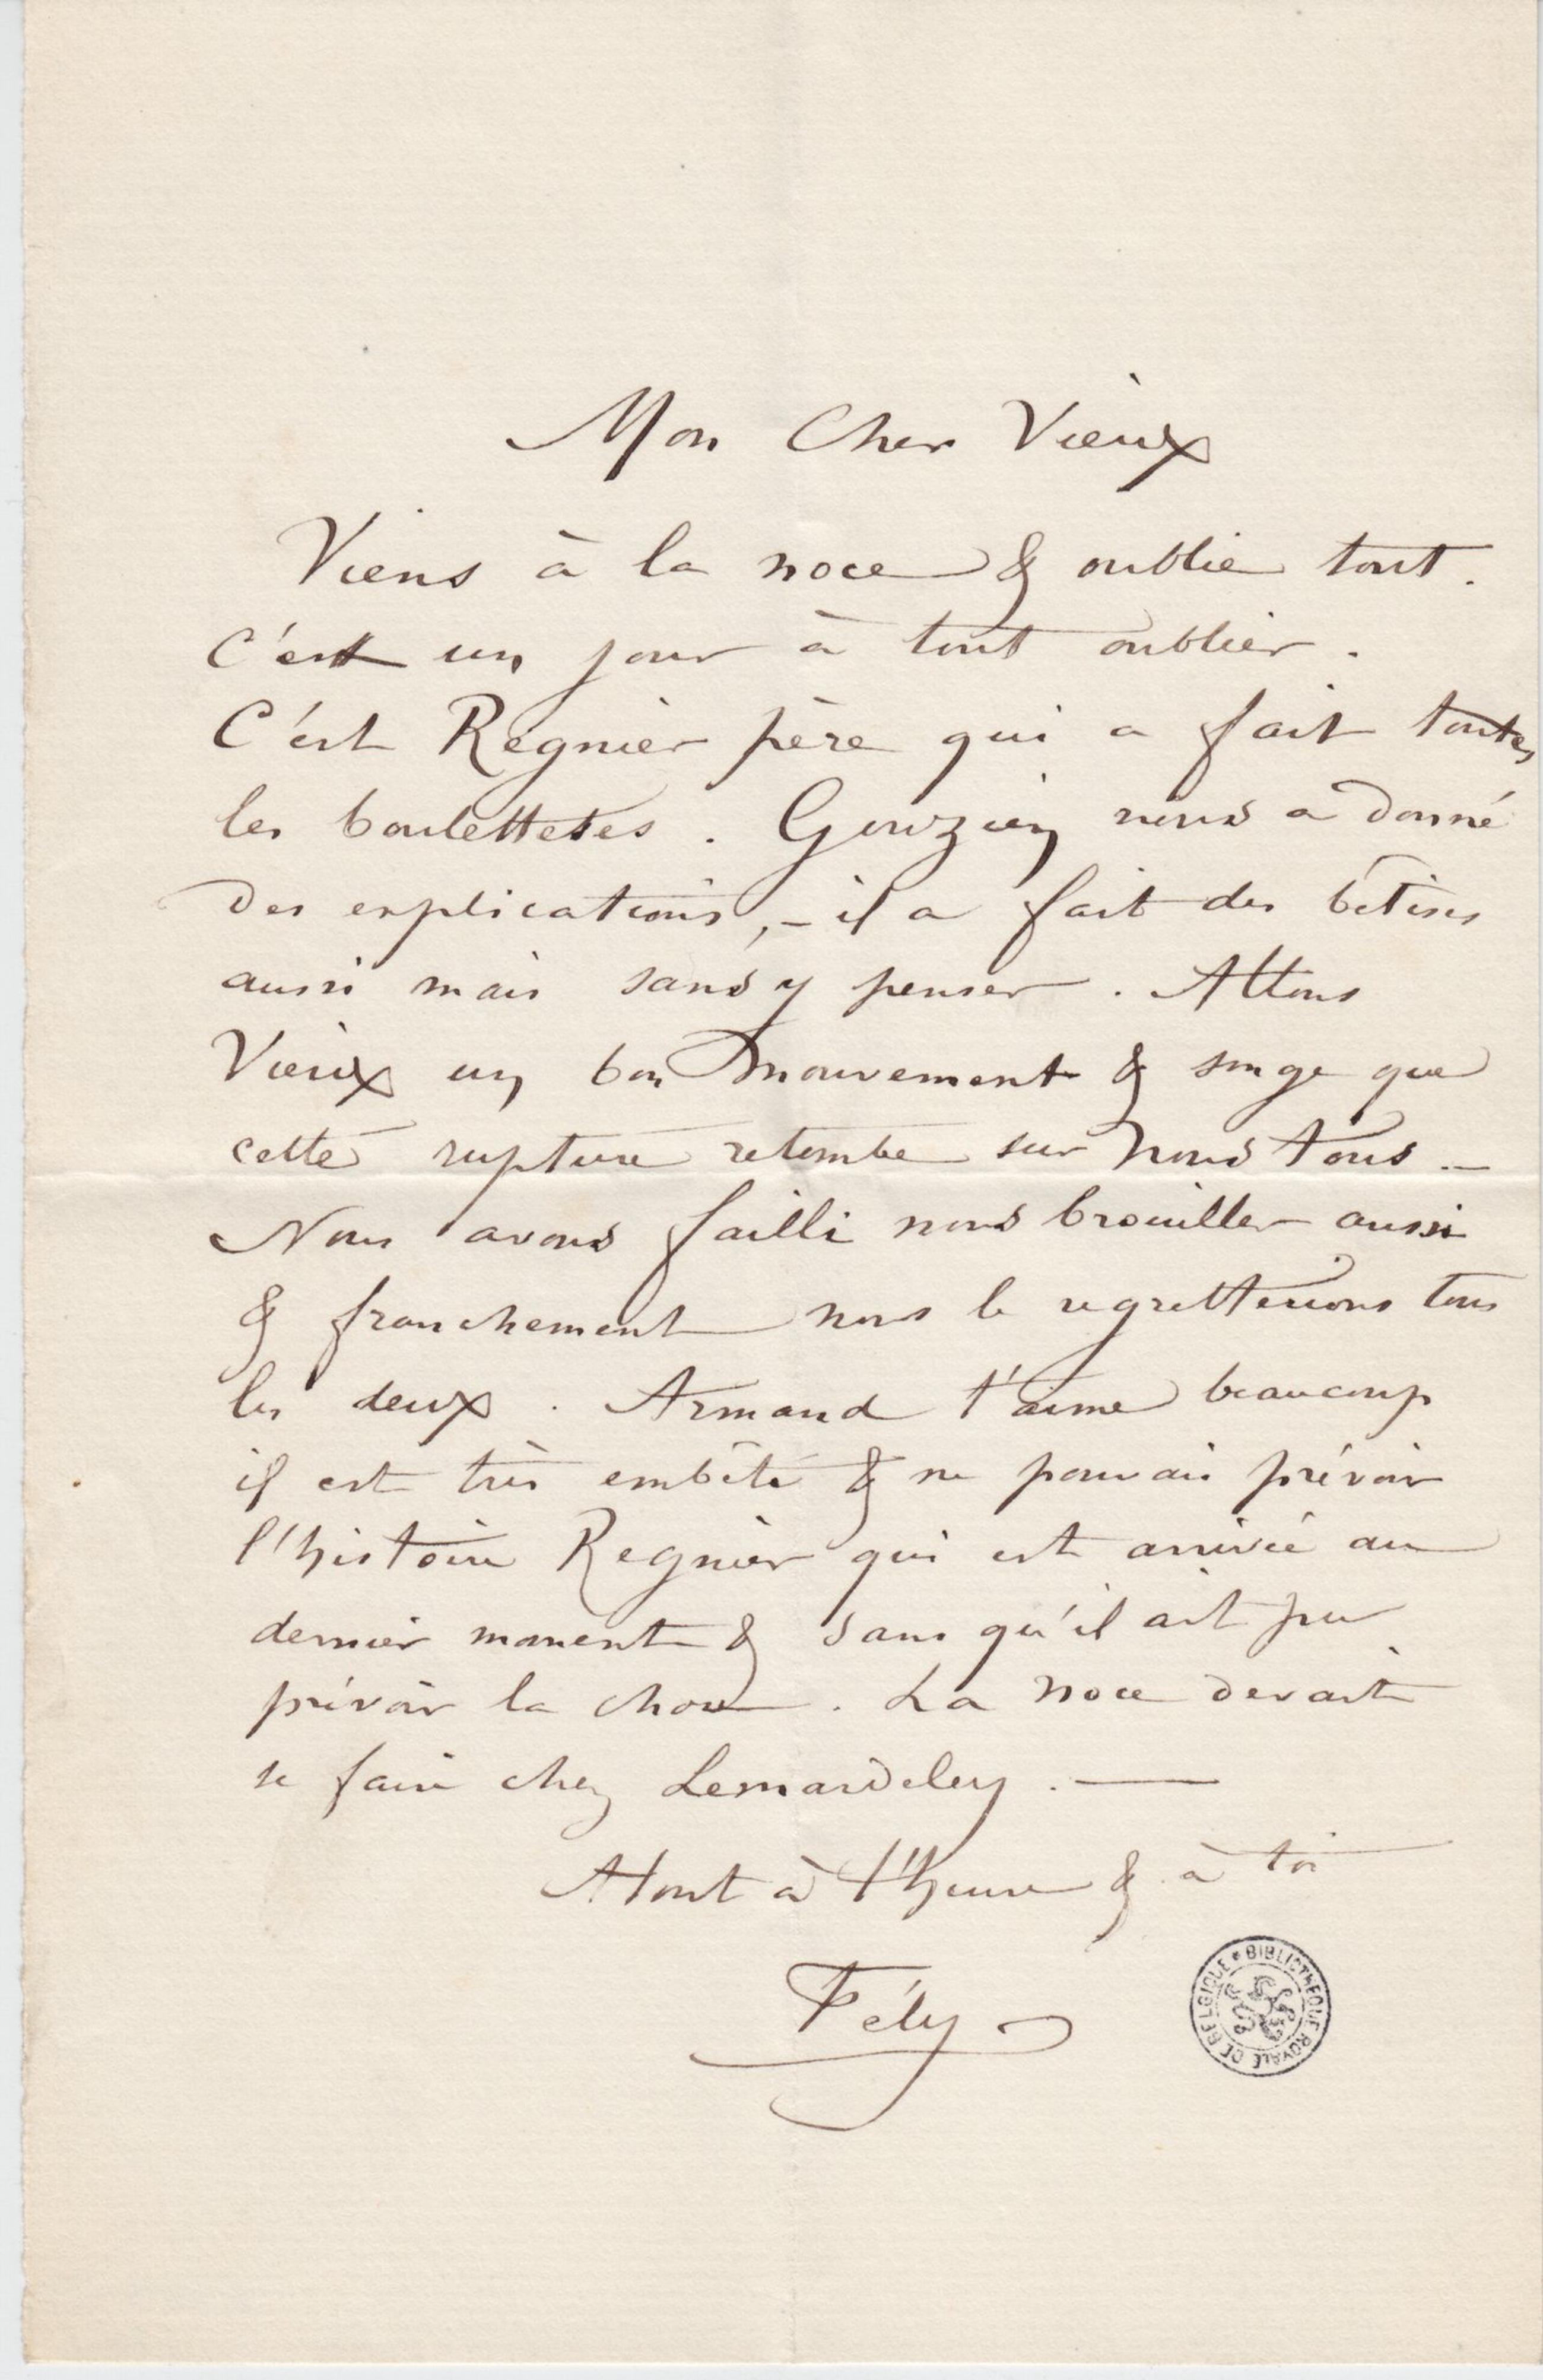 Mon Cher Vieux
Viens à la noce & oublie tout.
C'est un jour à tout oublier.
C'est Régnier père qui a fait toutes
les boulettetes. Gouzien nous a donné
des explications, – il a fait des bêtises
aussi mais sans y penser. Allons
Vieux un bon mouvement & songe que
cette rupture retombe sur nous tous –
Nous avons failli nous brouiller aussi
& franchement nous le regretterions tous
les deux. Armand t'aime beaucoup
il est très embêté & ne pouvais prévoir
l'histoire Regnier qui est arrivée au
dernier moment & sans qu'il ait pu
prévoir la chose. La noce devait
se faire chez Lemardeley. —
A tout à l'heure & à toi
Fély
BIBLIOTHEQUE ROYALE DE BELGIQUE *